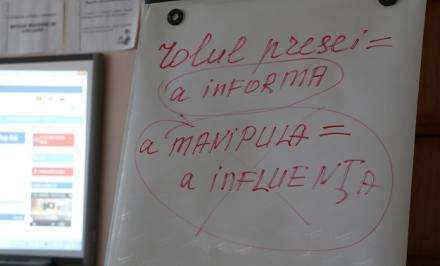 rolul presei =
a inFORMA
a MANiPULA =
a inFLUENȚA